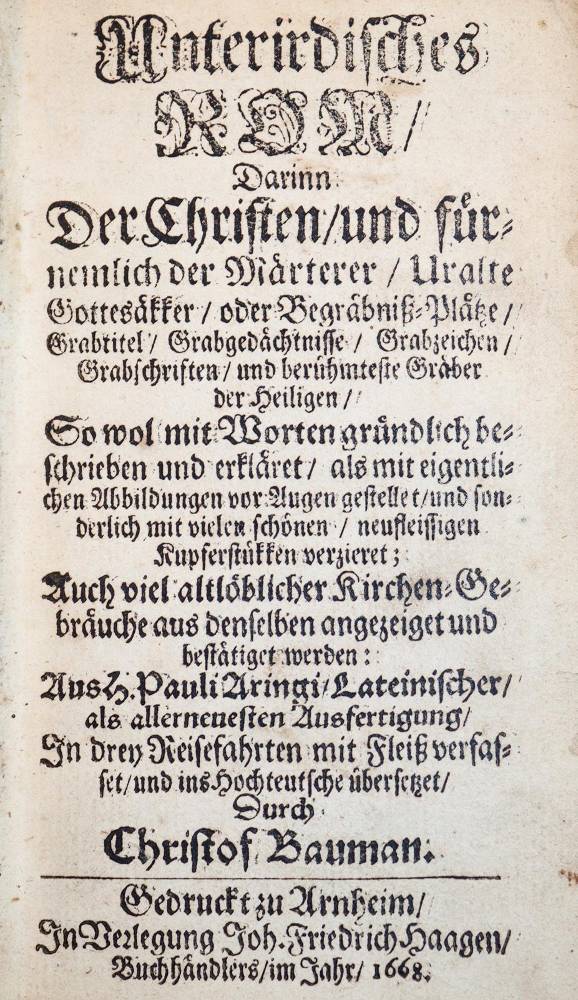 Unterirdisches
ROM /
Darinn
Der Christen / und für-
nemlich der Märterer / Uralte
Gottesäkker / oder Begräbniß-Plätze /
Grabtitel / Grabgedächtnisse / Grabzeichen /
Grabschriften / und berühmteste Gräber
der Heiligen /
So wol mit Worten gründlich be-
schrieben und erkläret / als mit eigentli-
chen Abbildungen vor Augen gestellet / und son-
derlich mit vielen schönen / neufleissigen
Kupferstükken verzieret ;
Auch viel altlöblicher Kirchen-Ge-
bräuche aus denselben angezeiget und
bestätiget werden :
Aus H. Pauli Aringi / Lateinischer /
als allerneuesten Ausfertigung /
In drey Reisefahrten mit Fleiß verfas-
set / und ins Hochteutsche übersetzet /
Durch
Christof Bauman.
Gedruckt zu Arnheim /
In Verlegung Joh. Friedrich Haagen /
Buchhändlers / im Jahr / 1668.